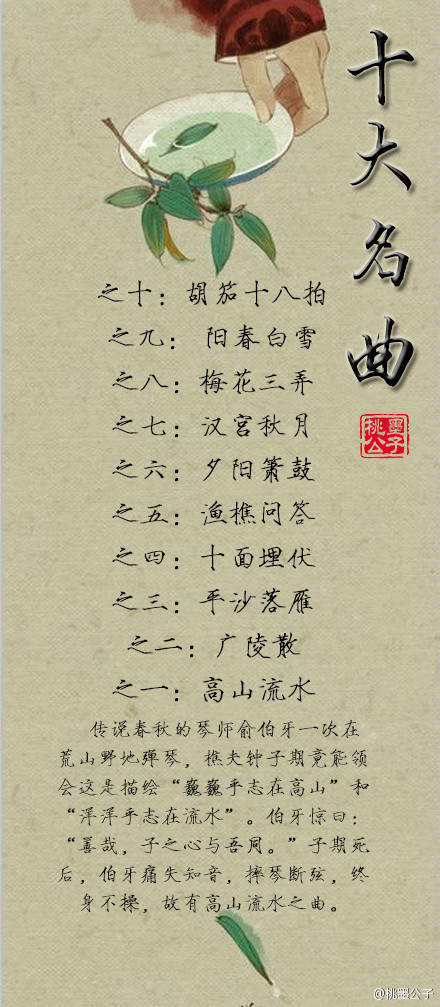 十大名曲
桃墨公子
之十：胡笳十八拍
之九：阳春白雪
之八：梅花三弄
之七：汉宫秋月
之六：夕阳箫鼓
之五：渔樵问答
之四：十面埋伏
之三：平沙落雁
之二：广陵散
之一：高山流水
传说春秋的琴师俞伯牙一次在
荒山野地弹琴，樵夫钟子期竟能领
会这是描绘“巍巍乎志在高山”和
“洋洋乎志在流水”。伯牙惊曰：
“善哉，子之心与吾同。”子期死
后，伯牙痛失知音，摔琴断弦，终
身不操，故有高山流水之曲。
@桃墨公子